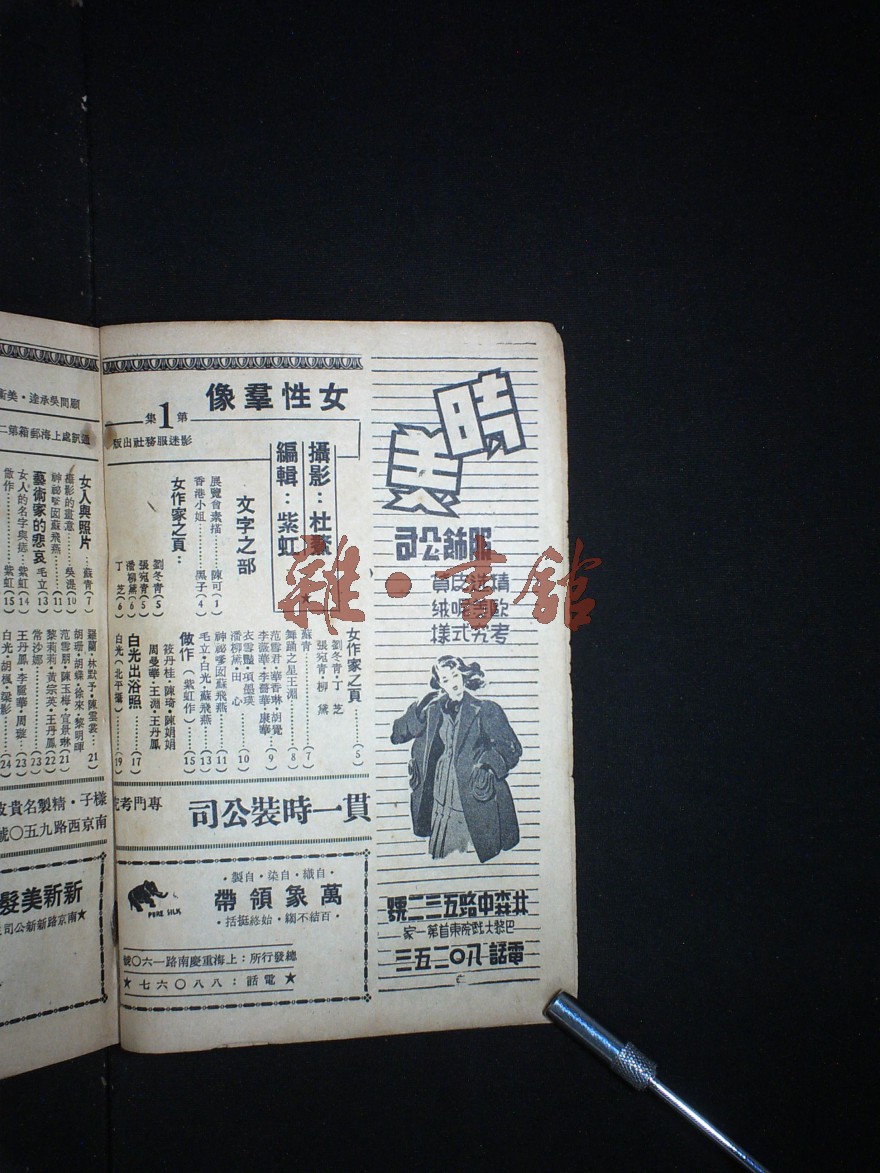 時美
服飾公司
精選皮貨
歐美呢絨
考究式樣
林森中路五三二號
巴黎大戲院東首第一家
電話八〇二五三
女性羣像
第1集
影迷服務社出版
攝影：杜鰲
編輯：紫虹
文字之部
展覽會素描……陳可(1)
香港小姐……黑子(4)
女作家之頁：
劉冬青(5)
張宛青(5)
潘柳黛(6)
丁 芝(6)
女人與照片…蘇青(7)
攝影的畫意…吳湜(10)
神祕多図蘇飛燕…(11)
藝術家的悲哀 毛立(13)
女人的名字與痣…紫虹(14)
做作……紫虹(15)
女作家之頁……(5)
劉冬青・丁 芝
張宛青・柳 黛
蘇青……(7)
舞踊之星王淵……(8)
范雪君・華香琳・胡覺
李薇華・李薔華・康華(9)
衣雪豔・項墨瑛
潘柳黛・田 心(10)
神祕爹図蘇飛燕……(11)
毛立・白光・蘇飛燕…(13)
做作(紫虹作)……(15)
筱丹桂・陳琦・陳娟娟
周曼華・王淵・王丹鳳
白光出浴照……(17)
白光(北平攝)……(19)
羅蘭・林默予・陳雲裳…21
胡珊・胡蝶・徐來・黎明暉
范雪朋・陳玉梅・宣景琳(21)
黎莉莉・黃宗英・王丹鳳(22)
常沙娜……(23)
王丹鳳・李麗華・周璇(23)
白光・胡楓・梁影(24)
顧問吳承達・美術
通訊處上海郵箱第二
貫一時裝公司
專門考究
樣子・精製名貴皮
南京西路九五〇號
・自織・自染・自製・
萬象領帶
・百結不縐・始終挺括・
PURE SILK
總發行所：上海重慶南路一六〇號
★電話：八八〇六七★
新新美髮
★南京路新新公司
雜・書館